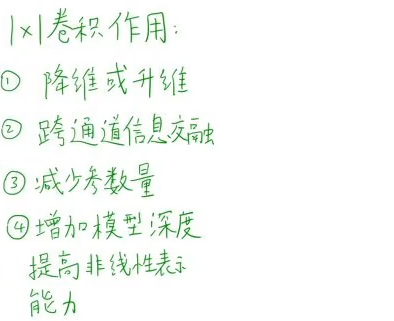 1×1卷积作用:
① 降维或升维
② 跨通道信息交融
③ 减少参数量
④ 增加模型深度
提高非线性表示
能力